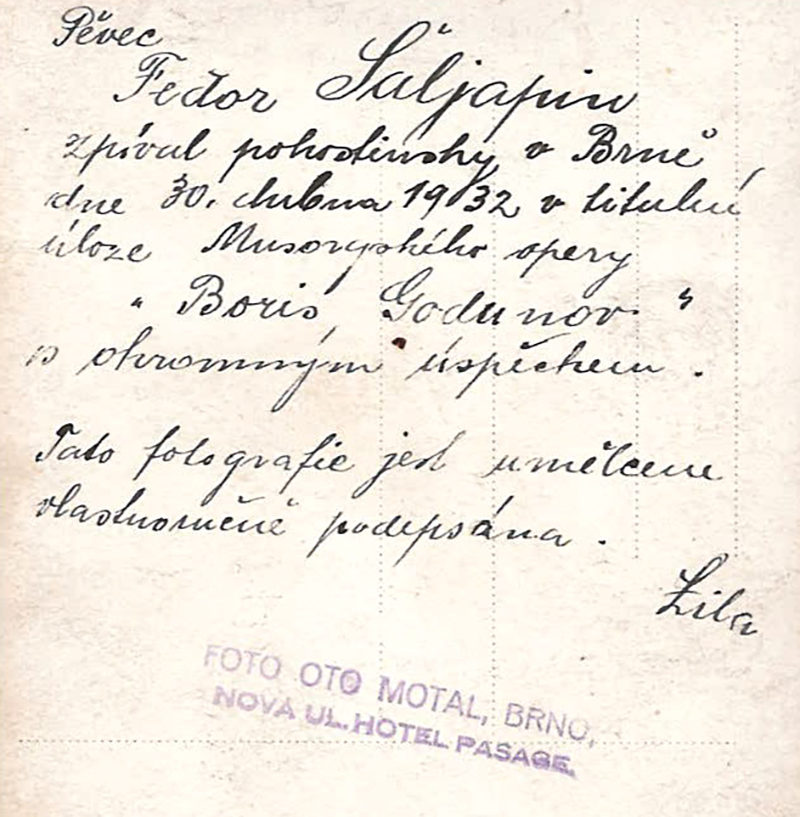 Pěvec
Feďor Šaljapin
zpíval pohostinsky v Brně,
dne 30. dubna 1932 v titulní
úloze Musorgského opery
„Boris Godunov"
s ohromným úspěchem.
Tato fotografie jest umělcem
vlastnoručně podepsána.
Žila
FOTO OTO MOTAL, BRNO,
NOVÁ UL. HOTEL PASAGE.